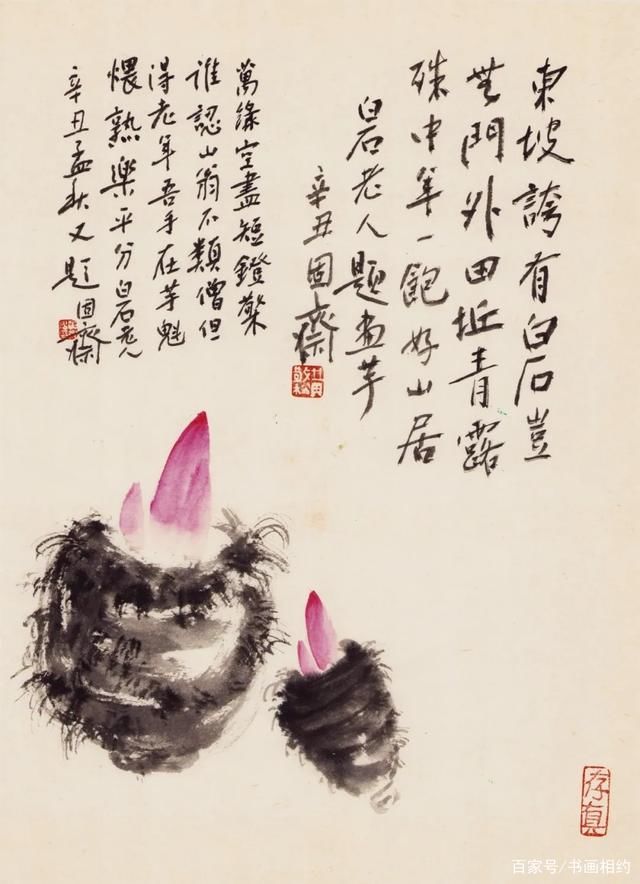 東坡誇有白石豈
無門外田坵青露
殊中年一飽好山居
白石老人題畫芋
辛丑固齋
萬緣空盡短鐙檠
誰認山翁不類僧但
得老年吾手在芋魁
煨熟樂平分白石
辛丑孟秋又題固齋
存真
百家号/书画相约